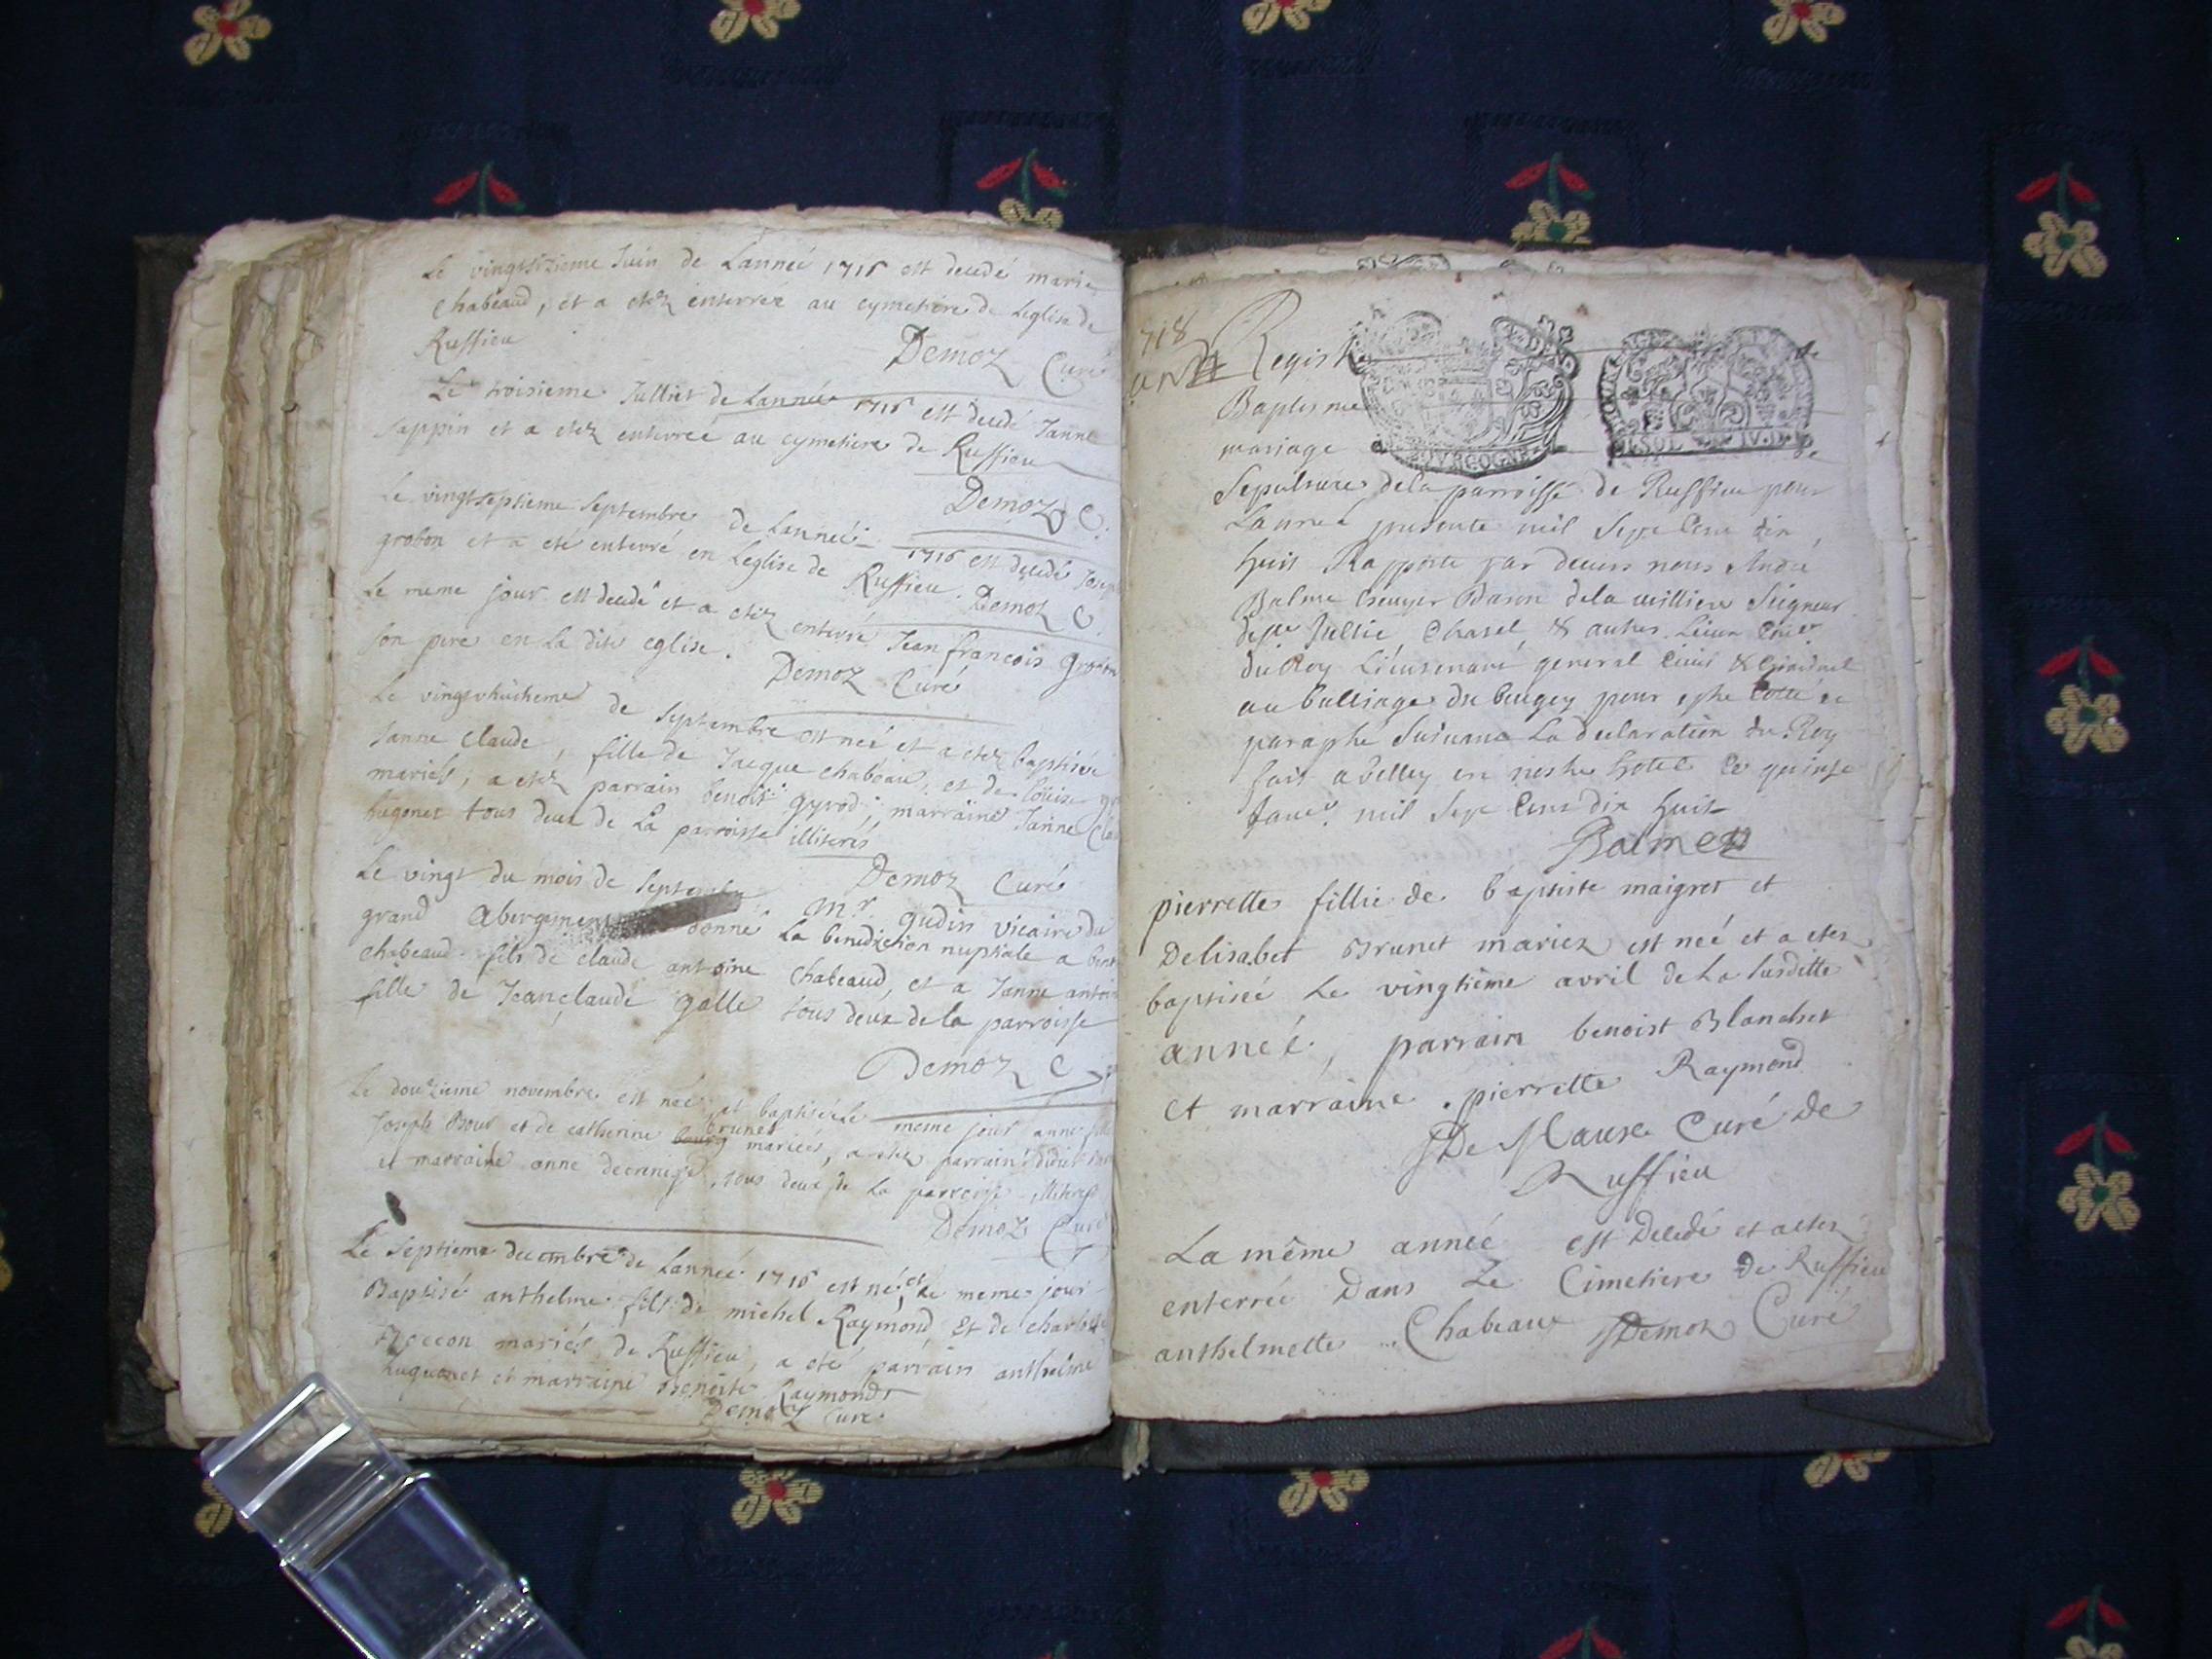 Le vingtsixieme Juin de Lanneé 1716 est decedé marie
Chabeaud, et a etez enterreé au cymetiere de Leglise de
Ruffieu
Demoz Curé
Le troisieme Julliet de Lanneé 1716 est decedé Janne
Sappin et a etez enterreé au cymetiere de Ruffieu
Demoz C.
Le vingtseptieme Septembre de Lanneé 1716 est decedé
grobon et a eté enterré en Leglise de Ruffieu. Demoz C.
Le meme jour est decedé et a etez enterré Jean francois
son pere en La dite eglise.
Demoz Curé
Le vingtvhuitieme de Septembre est neé et a etez baptiseé
Janne Claude, fille de Jacque chabeau, et de louise
mariés, a etez parrain benoit gyrod, marraine Janne
hugonet tous deux de La parroisse illiterés
Demoz Curé
Le vingt du mois de Septembre mr. gudin vicaire du
grand Abergement donné La benediction nuptiale a
Chabeaud fils de claude antoine Chabeaud, et a Janne
fille de Jeanclaude galle tous deux de la parroisse
Demoz C
Le douzieme novembre est neé et baptiseé le meme jour anne
Joseph Bour et de catherine brunet mariés, a etez parrain
et marraine anne tous deux de La parroisse illiterés
Demoz Curé
Le Septieme decembre de Lanneé 1716 est né, et le meme jour
Baptisé anthelme fils de michel Raymond, Et de
mariés de Ruffieu, a eté parrain anthelme
huguenet et marraine Benoite Raymond
Demoz Curé
718
Registre
Baptesme
mariage
Sepulture de la parroisse de Ruffieu pour
Lanneé presente mil Sept Cent dix
huit Rapporté par devers nous André
Balme Escuyer Baron de la Seigneur
de Jullie, Chasel & autres Lieux
du Roy Lieutenant general Civil & Criminel
au balliage du bugey pour estre Cotté et
paraphé Suivant La declaration du Roy
fait a belley en nostre hotel le quinse
Janv. mil Sept Cens dix huit
Balme
pierrette fillie de baptiste maigret et
Delisabet Brunet mariez est neé et a etez
baptiseé Le vingtième avril de La susditte
anneé, parrain benoist Blanchet
et marraine pierrette Raymond
Curé de
Ruffieu
La même anneé est Decedé et a etez
enterreé Dans Le Cimetiere de Ruffieu
anthelmette Chabeaux Demoz Curé